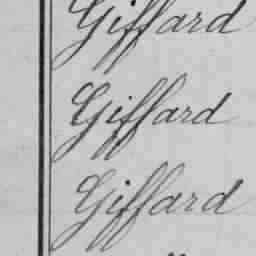 Giffard
Giffard
Giffard
"